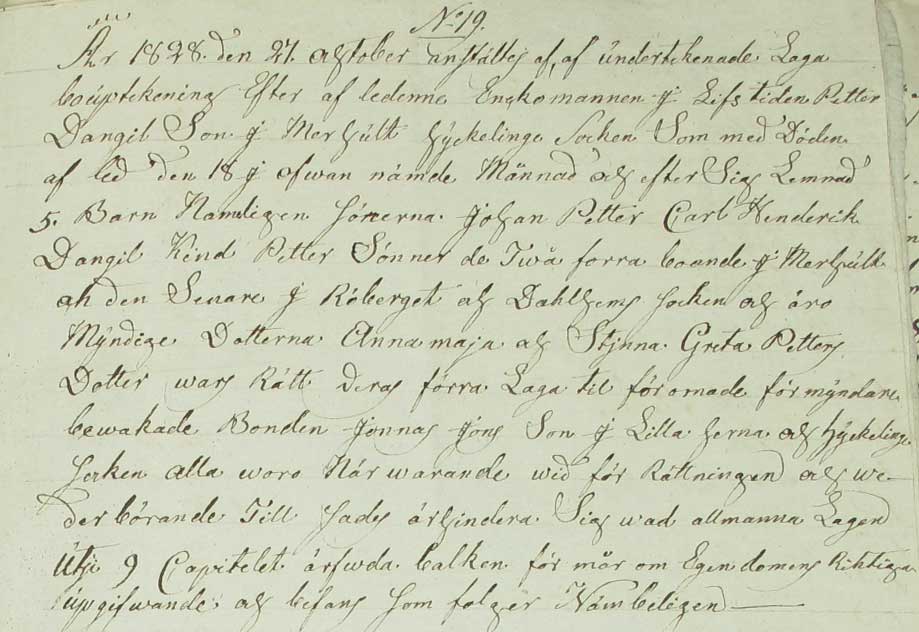 No 19.
År 1828. den 27. October anställtes af, af undertekenade Laga
bouptekening Efter af ledenne Enckomannen J Lifs tiden Petter
Dangil Son J Merhult Hyckelinge Socken Som med Döden
af led den 18 J ofwan nämde Månnad och efter Sig Lemnad
5. Barn Namligen Sönerna Johan Petter Carl Henderik
Dangil Kind Petter Sönner de Twå förra boende J Merhult
ah den Senare J Röberget af Dahlhems socken och äro
Myndige Dotterna Anna maja och Stjnna Greta Petters
Dotter wars Rätt deras förra Laga til förornade förmyndare
bewakade Bonden Jonnas Jons Son J Lilla herna och Hyckelinge
socken alla woro När warande wid för Rättningen och we-
derbörande Till sades ärhindera Sig wad allmanna Lagen
Utji 9 Capitelet ärfwda balken för mår om Egendomens Rihtiga
upgifwande och befans som folger Nämbeligen